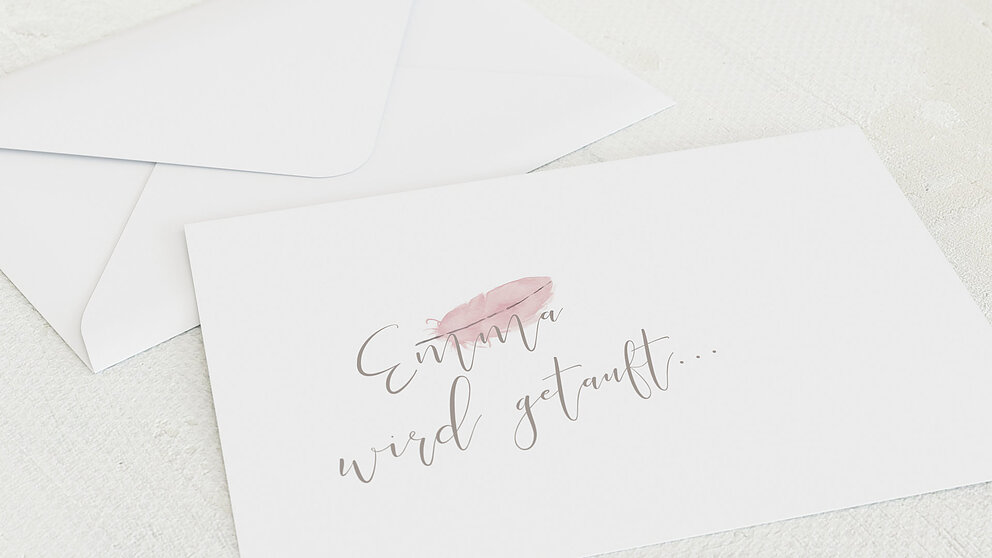 Emma
wird getauft...